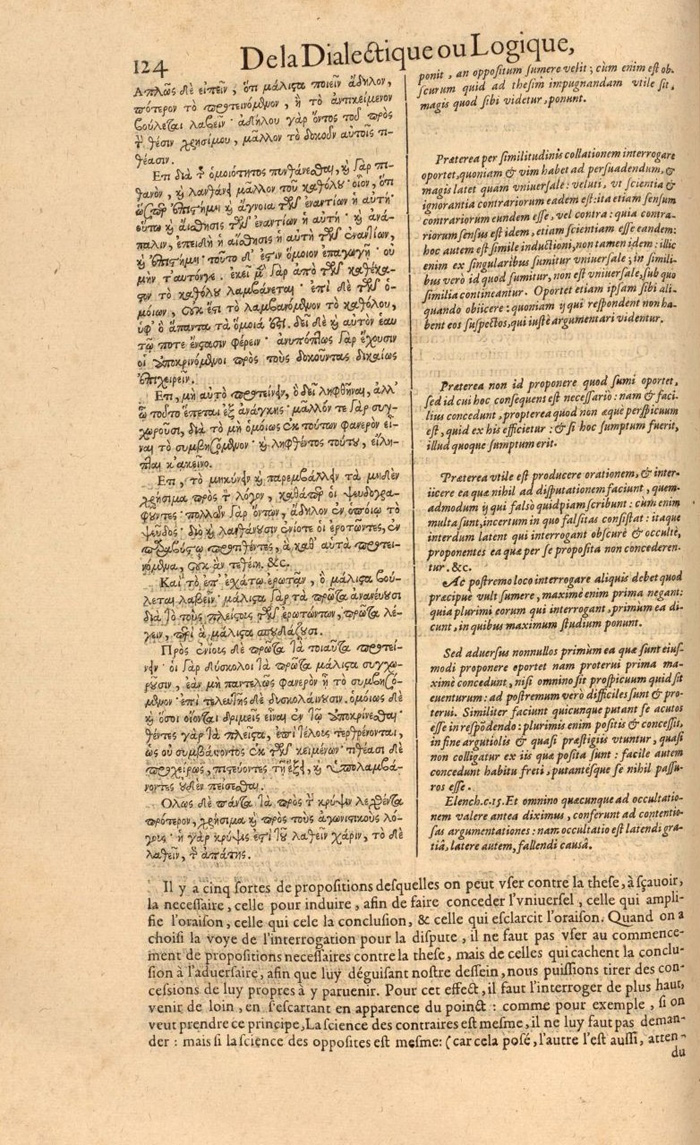 124
De la Dialectique ou Logique,
Ἁπλῶς δὲ εἰπεῖν, ὅτι μάλιςα ποιεῖν ἄδηλον,
πότερον τὸ προτεινόμϑνον, ἢ τὸ ἀντικείμενον
βούλεται λαβεῖν· ἀδήλου γὰρ ὄντος τοῦ πρὸς
τ θέσιν χρησίμου, μᾶλλον τὸ δοκοῦν αὑτοῖς τι-
θέασιν.
Ἔτι διὰ τ ὁμοιότητος πυνθάνεσθαι, ϗ γὰρ πι-
θανὸν, ϗ λανθάνει μᾶλλον τοῦ καθόλου· οἷον, ὅτι
ὥσπερ ἐπιςήμη ϗ ἄγνοια τῶν ἐναντίων ἡ αὐτὴ·
οὕτω ϗ αἴσθησις τῶν ἐναντίων ἡ αὐτή· ϗ ἀνά-
παλιν, ἐπειδὴ ἡ αἴσθησις ἡ αὐτὴ τῶν ἐναντίων,
ϗ ἐπιςήμη· τοῦτο δ' ἐςὶν ὅμοιον ἐπαγωγῇ· οὐ
μὴν τ'αυτόν γε. ἐκεῖ μ γὰρ ἀπὸ τῶν καθέκα-
ςον τὸ καθόλου λαμβάνεται· ἐπὶ δὲ τῶν ὁ-
μοίων, οὐκ ἔςι τὸ λαμβανόμϑνον τὸ καθόλου,
ὑφ' ὃ ἅπαντα τὰ ὅμοιά ἐςι. δεῖ δὲ ϗ αὐτὸν ἑαυ
τῷ ποτε ἔνςασιν φέρειν· ἀνυπόπτως γὰρ ἔχουσιν
οἱ ἀποκρινόμϑνοι πρὸς τοὺς δοκοῦντας δικαίως
ἐπιχειρεῖν.
Ἔτι, μὴ αὐτὸ προτείνειν, ὃ δεῖ ληφθῆναι, ἀλλ'
ᾧ τοῦτο ἕπεται ἐξ ἀνάγκης· μᾶλλόν τε γὰρ συγ-
χωροῦσι, διὰ τὸ μὴ ὁμοίως ἐκ τούτων φανερὸν εἶ-
ναι τὸ συμβησόμϑνον· ϗ ληφθέντος τούτου, εἴλη-
πται κ'ἀκεῖνο.
Ἔτι, τὸ μηκύνειν ϗ παρεμβάλλειν τὰ μηδὲν
χρήσιμα πρὸς τ λόγον, καθάπερ οἱ ψευδογρα-
φοῦντες· πολλῶν γὰρ ὄντων, ἄδηλον ἐν ὁποίῳ τὸ
ψεῦδος· διὸ ϗ λανθάνουσιν ἐνίοτε οἱ ἐρωτῶντες, ἐν
παραβύςῳ προςιθέντες, ἃ καθ' αὑτὰ προτει-
νόμϑνα, οὐκ ἂν τεθείη. &c.
Καὶ τὸ ἐπ' ἐχάτῳ ἐρωτᾷν, ὃ μάλιςα βού-
λεται λαβεῖν· μάλιςα γὰρ τὰ πρῶτα ἀνανεύουσι
διὰ τὸ τοὺς πλείςτους τῶν ἐρωτώντων, πρῶτα λέ-
γειν, περὶ ἃ μάλιςα σπουδάζουσι.
Πρὸς ἐνίους δὲ πρῶτα τὰ τοιαῦτα προτεί-
νειν· οἱ γὰρ δύσκολοι τὰ πρῶτα μάλιςα συγχω-
ροῦσιν, ἐὰν μὴ παντελῶς φανερὸν ᾖ τὸ συμβησό-
μϑνον· ἐπὶ τελευτῆς δὲ δυσκολαίνουσιν. ὁμοίως δὲ
ϗ ὅσοι οἴονται δριμεῖς εἶναι ἐν τῷ ἀποκρίνεσθαι·
θέντες γὰρ τὰ πλεῖςα, ἐπὶ τέλους τερθρεύονται,
ὡς οὐ συμβαίνοντος ἐκ τῶν κειμένων· τιθέασι δὲ
προχείρως, πιςεύοντες τῇ ἕξει, ϗ ὑπολαμβά-
νοντες οὐδὲν πείσεσθαι.
Ὅλως δὲ πάντα τὰ πρὸς τ κρύψιν λεχθέντα
πρότερον, χρήσιμα ϗ πρὸς τοὺς ἀγωνιςικοὺς λό-
γους· ἡ γὰρ κρύψις ἐςὶ τοῦ λαθεῖν χάριν, τὸ δὲ
λαθεῖν, τ ἀπάτης.
ponit, an oppositum sumere velit; cùm enim est ob-
scurum quid ad thesim impugnandam vtile sit,
magis quod sibi videtur, ponunt.
Præterea per similitudinis collationem interrogare
oportet, quoniam & vim habet ad persuadendum, &
magis latet quàm vniuersale: veluti, vt scientia &
ignorantia contrariorum eadem est: ita etiam sensum
contrariorum eundem esse, vel contra: quia contra-
riorum sensus est idem, etiam scientiam esse eandem:
hoc autem est simile inductioni, non tamen idem: illic
enim ex singularibus sumitur vniuersale; in simili-
bus verò id quod sumitur, non est vniuersale, sub quo
similia contineantur. Oportet etiam ipsam sibi ali-
quando obiicere: quoniam ij qui respondent non ha-
bent eos suspectos, qui iustè argumentari videntur.
Præterea non id proponere quod sumi oportet,
sed id cui hoc consequens est necessariò: nam & faci-
lius concedunt, propterea quod non æque perspicuum
est, quid ex his efficietur: & si hoc sumptum fuerit,
illud quoque sumptum erit.
Præterea vtile est producere orationem, & inter-
iicere ea quæ nihil ad disputationem faciunt, quem-
admodum ij qui falsò quidpiam scribunt: cùm enim
multa sunt, incertum in quo falsitas consistat: itaque
interdum latent qui interrogant obscurè & occultè,
proponentes ea quæ per se proposita non concederen-
tur. &c.
Ac postremo loco interrogare aliquis debet quod
præcipuè vult sumere, maximè enim prima negant:
quia plurimi eorum qui interrogant, primùm ea di-
cunt, in quibus maximum studium ponunt.
Sed aduersus nonnullos primùm ea quæ sunt eius-
modi proponere oportet nam proterui prima ma-
ximè concedunt, nisi omnino sit prospicuum quid sit
euenturum: ad postremum verò difficiles sunt & pro-
terui. Similiter faciunt quicunque putant se acutos
esse in respōdendo: plurimis enim positis & concessis,
in fine argutiolis & quasi præstigiis vtuntur, quasi
non colligatur ex iis quæ posita sunt: facile autem
concedunt habitu freti, putantésque se nihil passu-
ros esse.
Elench. c. 15. Et omnino quæcunque ad occultatio-
nem valere antea diximus, conferunt ad contentio-
sas argumentationes: nam occultatio est latendi gra-
tiâ, latere autem, fallendi causâ.
Il y a cinq sortes de propositions desquelles on peut vser contre la these, à sçauoir,
la necessaire, celle pour induire, afin de faire conceder l'vniuersel, celle qui ampli-
fie l'oraison, celle qui cele la conclusion, & celle qui esclarcit l'oraison. Quand on a
choisi la voye de l'interrogation pour la dispute, il ne faut pas vser au commence-
ment de propositions necessaires contre la these, mais de celles qui cachent la conclu-
sion à l'aduersaire, afin que luy déguisant nostre dessein, nous puissions tirer des con-
cessions de luy propres à y paruenir. Pour cet effect, il faut l'interroger de plus haut,
venir de loin, en s'escartant en apparence du poinct: comme pour exemple, si on
veut prendre ce principe, La science des contraires est mesme, il ne luy faut pas deman-
der: mais si la science des opposites est mesme: (car cela posé, l'autre l'est aussi, atten-
du